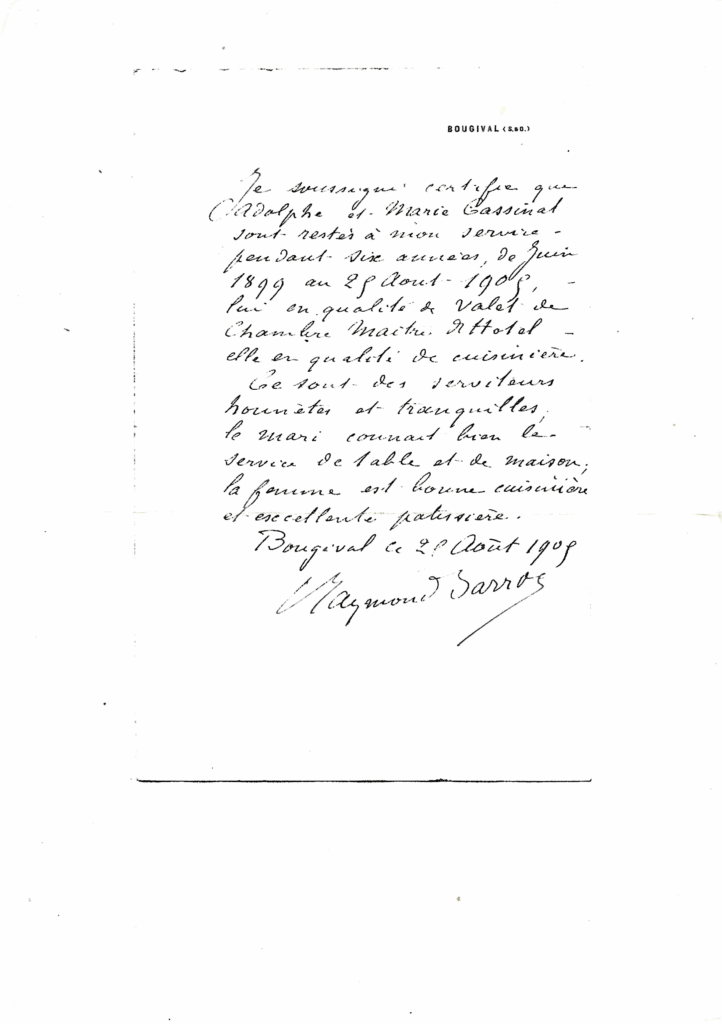 BOUGIVAL (S.&O.)
Je soussigné certifie que
Adolphe et Marie Gassinat
sont restés à mon service
pendant six années, de Juin
1899 au 25 Aout 1905,
lui en qualité de Valet de
Chambre Maitre d'Hotel
elle en qualité de cuisinière.
Ce sont des serviteurs
honnètes et tranquilles,
le mari connait bien le
service de table et de maison;
la femme est bonne cuisinière
et excellente patissière.
Bougival ce 25 Août 1905
Raymond Barrog